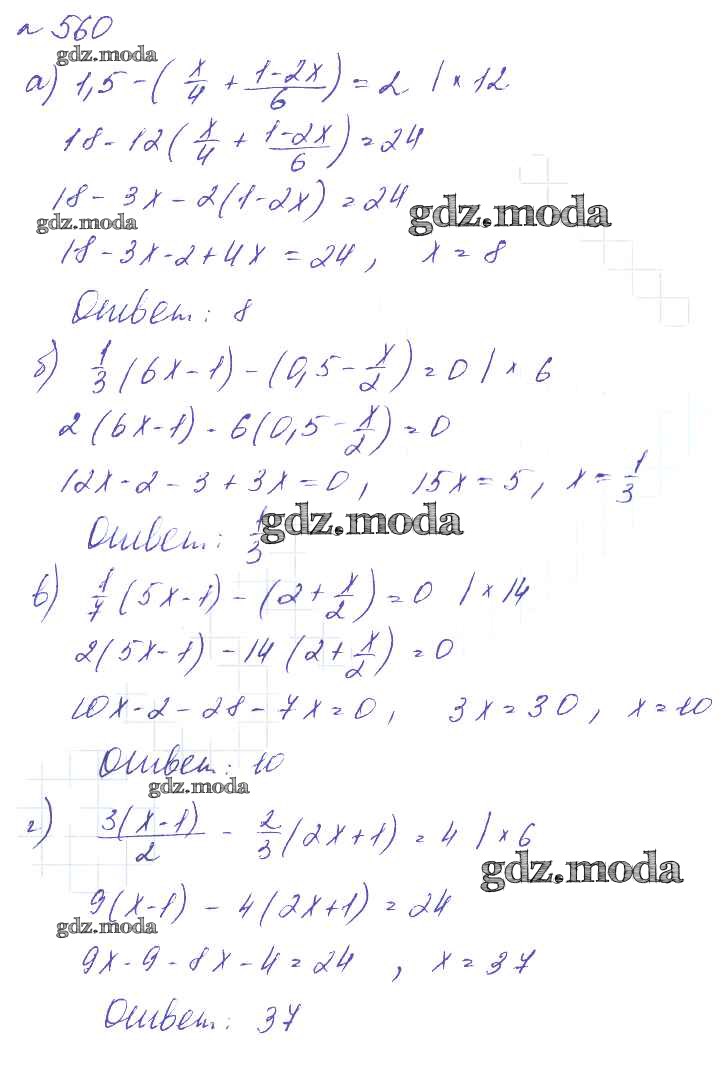 № 560
gdz.moda
а) 1,5 - (x/4 + (1-2x)/6) = 2 | × 12
18 - 12(x/4 + (1-2x)/6) = 24
18 - 3x - 2(1-2x) = 24
gdz.moda
gdz.moda
18 - 3x - 2 + 4x = 24, x = 8
Ответ: 8
б) 1/3 (6x-1) - (0,5 - x/2) = 0 | × 6
2(6x-1) - 6(0,5 - x/2) = 0
12x - 2 - 3 + 3x = 0, 15x = 5, x = 1/3
Ответ: 1/3
gdz.moda
в) 1/7 (5x-1) - (2 + x/2) = 0 | × 14
2(5x-1) - 14(2 + x/2) = 0
10x - 2 - 28 - 7x = 0, 3x = 30, x = 10
Ответ: 10
gdz.moda
г) 3(x-1)/2 - 2/3 (2x+1) = 4 | × 6
gdz.moda
9(x-1) - 4(2x+1) = 24
gdz.moda
9x - 9 - 8x - 4 = 24, x = 37
Ответ: 37